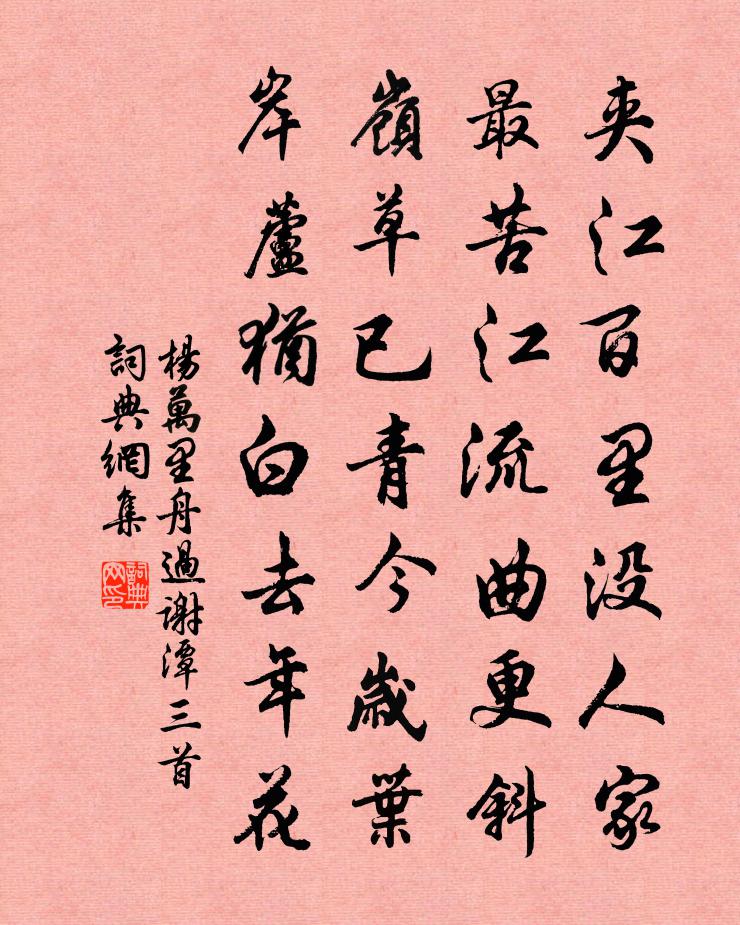 夾江百里没人家
最苦江流曲更斜
嶺草已青今歲葉
岸蘆猶白去年花
楊萬里舟過谢潭三首
詞典網集
詞典
网印